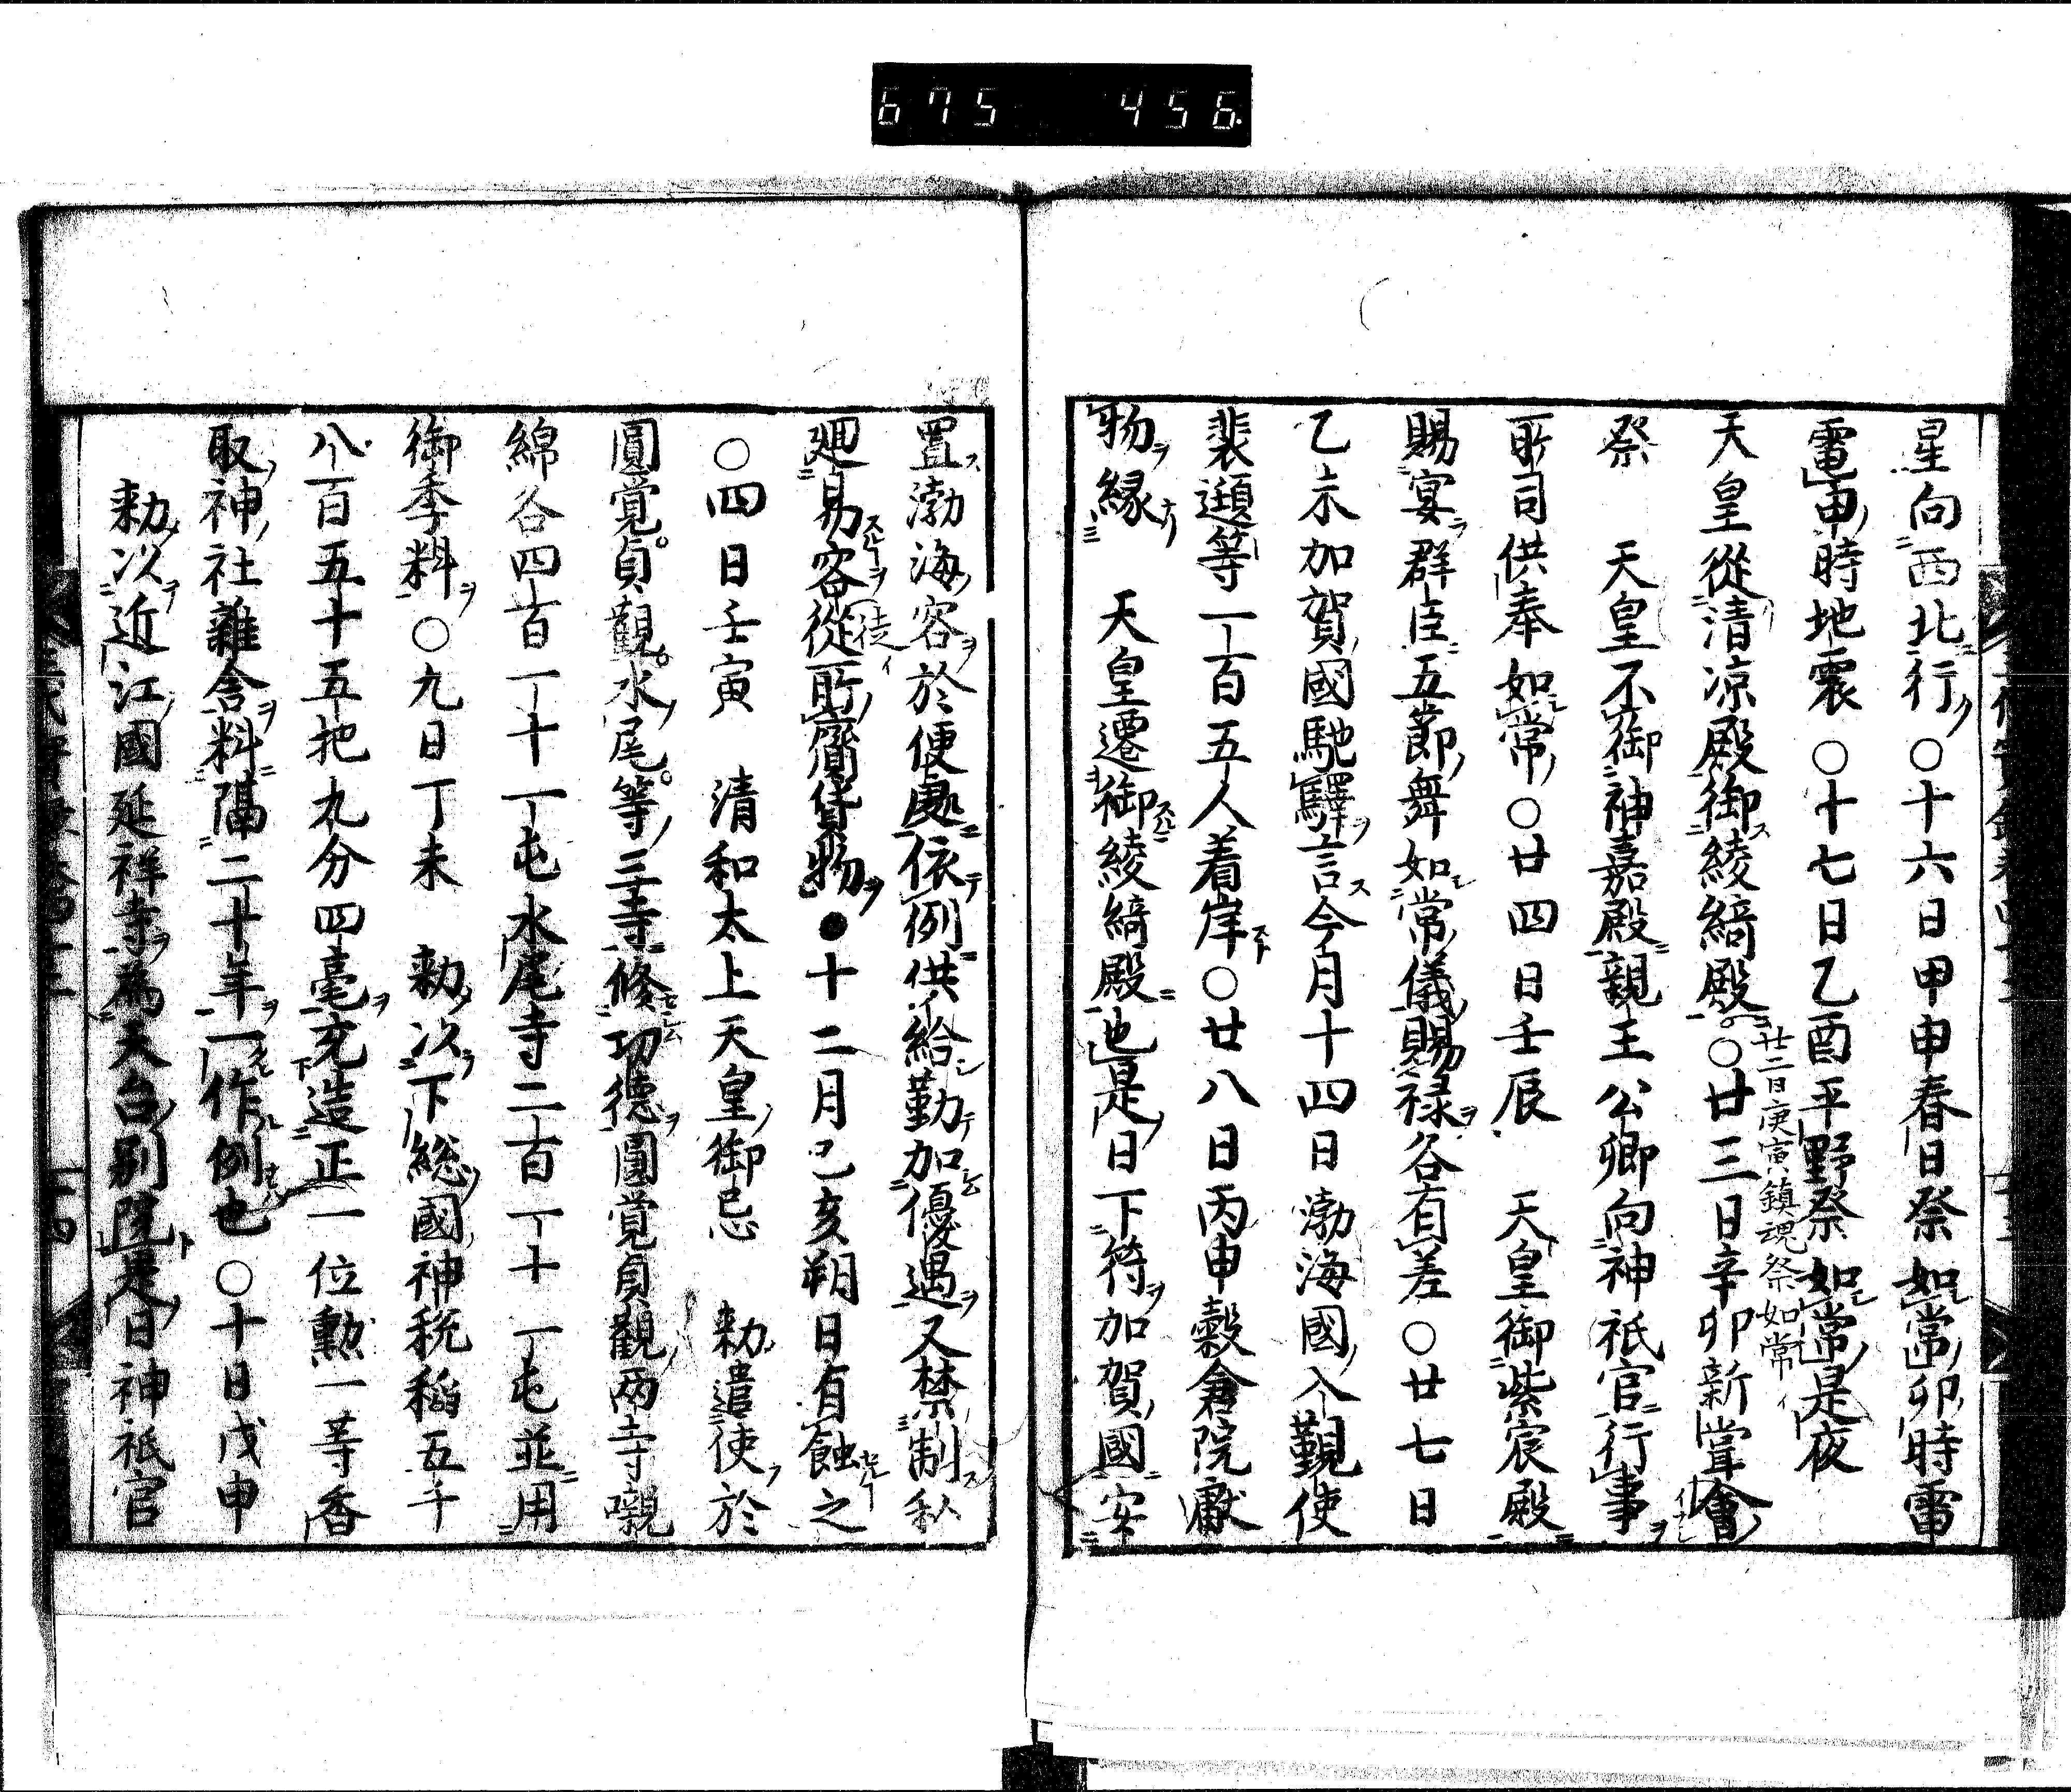 675 456
星向西北行○十六日甲申春日祭如常卯時雷
電申時地震○十七日乙酉平野祭如常是夜
天皇從清凉殿御綾綺殿○廿三日辛卯新甞會
廿二日庚寅鎮魂祭如常イ
祭 天皇不御神嘉殿親王公卿向神祇官行事
所司供奉如常○廿四日壬辰 天皇御紫宸殿
賜宴群臣五節舞如常儀賜祿各有差○廿七日
乙未加賀國馳驛言今月十四日渤海國入覲使
裴頲等一百五人着岸○廿八日丙申穀倉院獻
物縁 天皇遷御綾綺殿也是日下符加賀國安
置渤海客於便處依例供給勤加優遇又禁制私
廻易客從所齎貨物●十二月己亥朔日有蝕之
徒イ
○四日壬寅 清和太上天皇御忌 勅遣使於
圓覚貞觀水尾等三寺修功德圓覚貞觀兩寺嚫
綿各四百一十一屯水尾寺二百一十一屯並用
御季料○九日丁未 勅以下総國神税稲五千
八百五十五把九分四毫充造正一位勲一等香
取神社雜舎料隔二十年一作例也○十日戊申
勅以近江國延祥寺爲天台別院是日神祇官